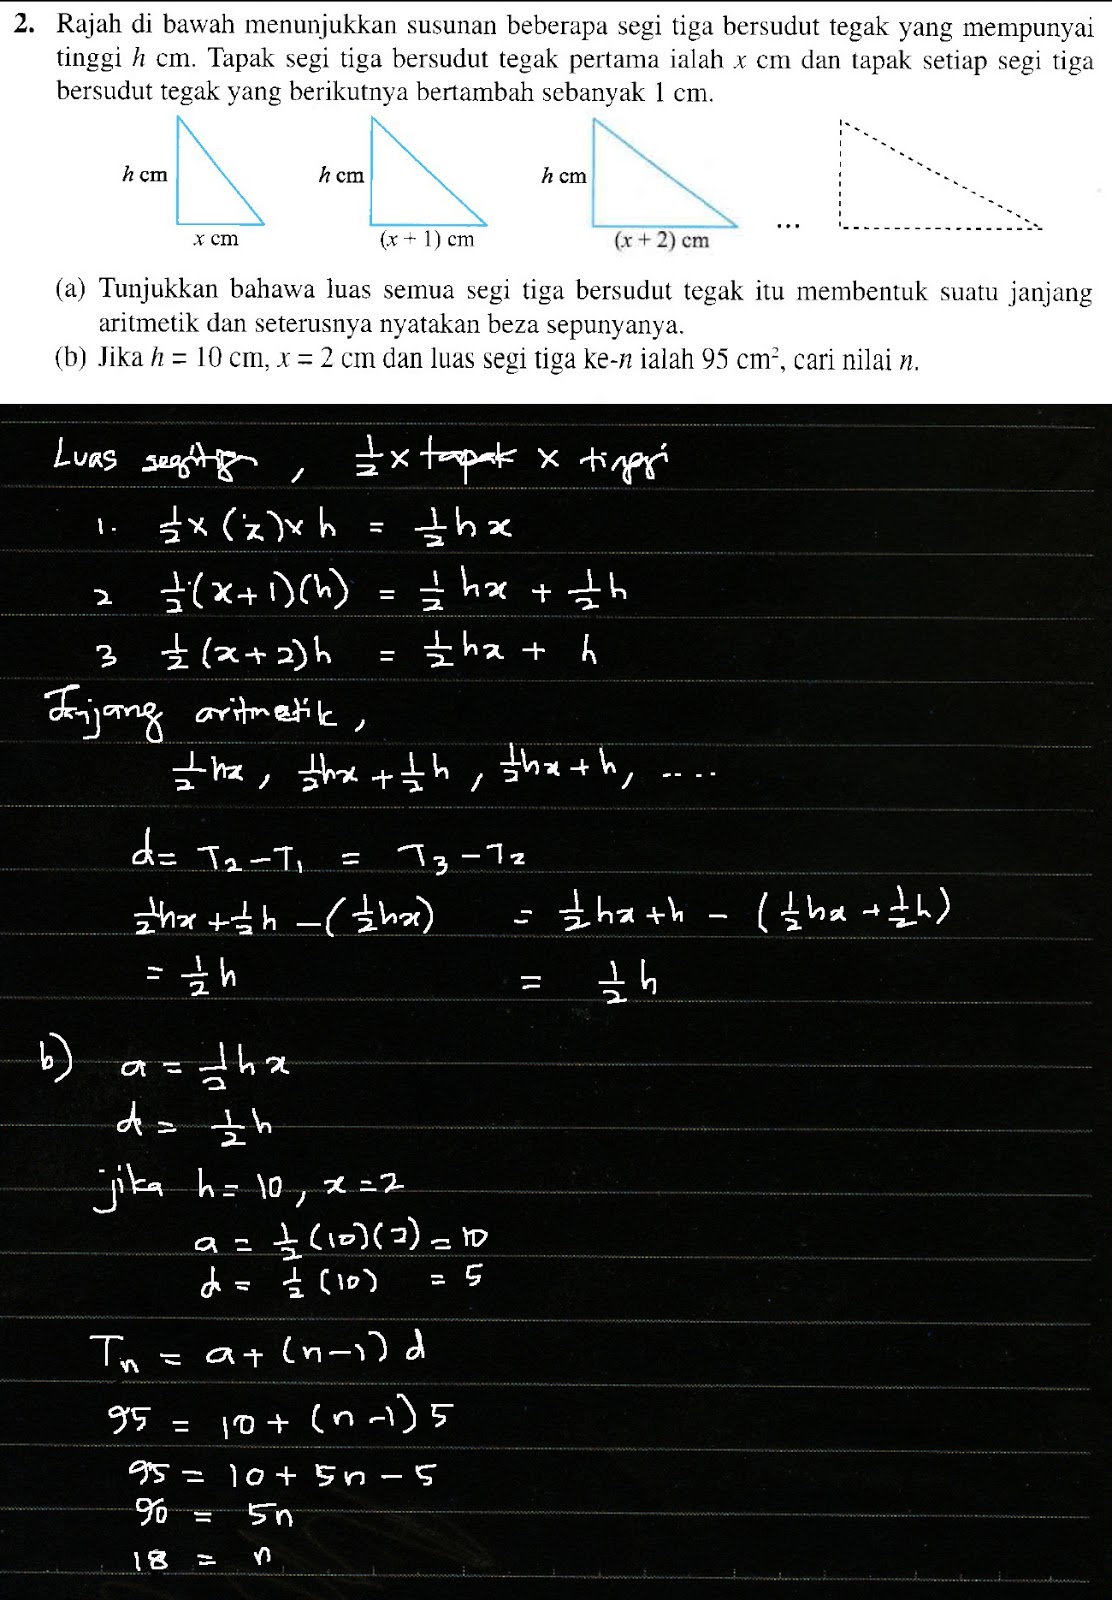 2. Rajah di bawah menunjukkan susunan beberapa segi tiga bersudut tegak yang mempunyai
tinggi h cm. Tapak segi tiga bersudut tegak pertama ialah x cm dan tapak setiap segi tiga
bersudut tegak yang berikutnya bertambah sebanyak 1 cm.
h cm
h cm
h cm
...
x cm
(x + 1) cm
(x + 2) cm
(a) Tunjukkan bahawa luas semua segi tiga bersudut tegak itu membentuk suatu janjang
aritmetik dan seterusnya nyatakan beza sepunyanya.
(b) Jika h = 10 cm, x = 2 cm dan luas segi tiga ke-n ialah 95 cm², cari nilai n.
Luas segitiga, ½ × tapak × tinggi
1. ½ × (x) × h = ½hx
2 ½(x+1)(h) = ½hx + ½h
3 ½(x+2)h = ½hx + h
Janjang aritmetik,
½hx, ½hx + ½h, ½hx + h, ....
d = T₂ − T₁ = T₃ − T₂
½hx + ½h − (½hx) = ½hx + h − (½hx + ½h)
= ½h = ½h
b) a = ½hx
d = ½h
jika h = 10, x = 2
a = ½(10)(2) = 10
d = ½(10) = 5
Tn = a + (n−1) d
95 = 10 + (n−1) 5
95 = 10 + 5n − 5
90 = 5n
18 = n